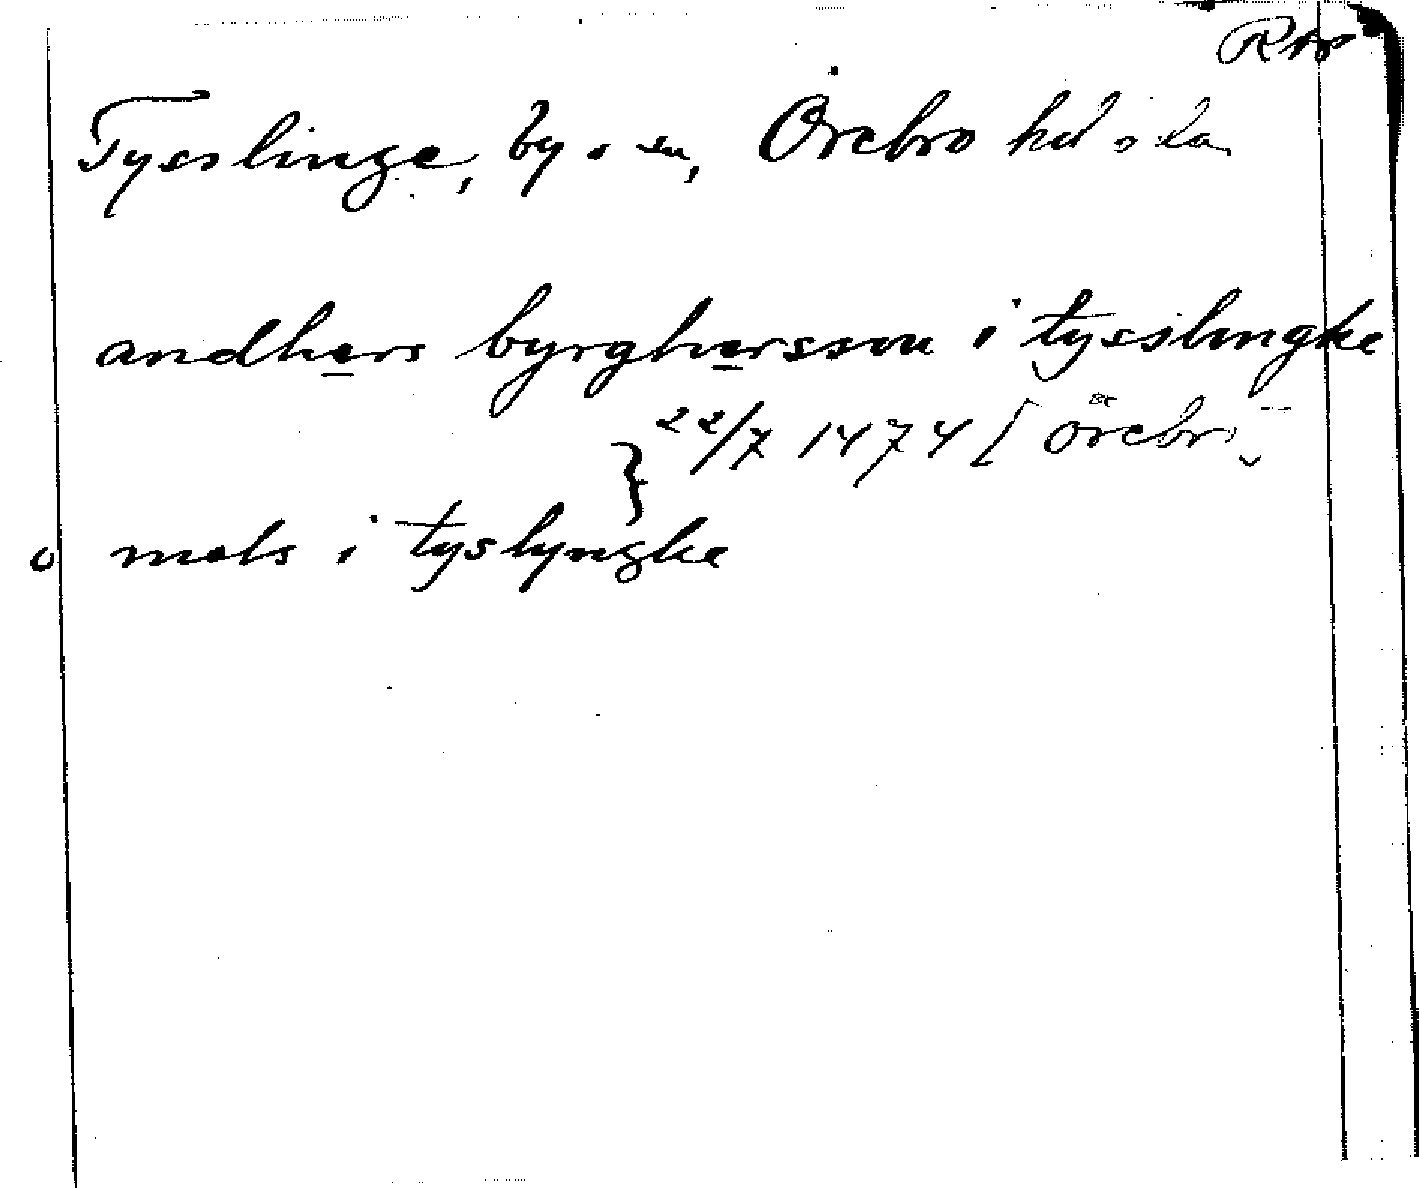 RAp
Tysslinge, by o sn, Örebro hd o län
andhers byrghersson i tysslingke
22/7 1474 [Örebro]
} 
mals i tyslyngke